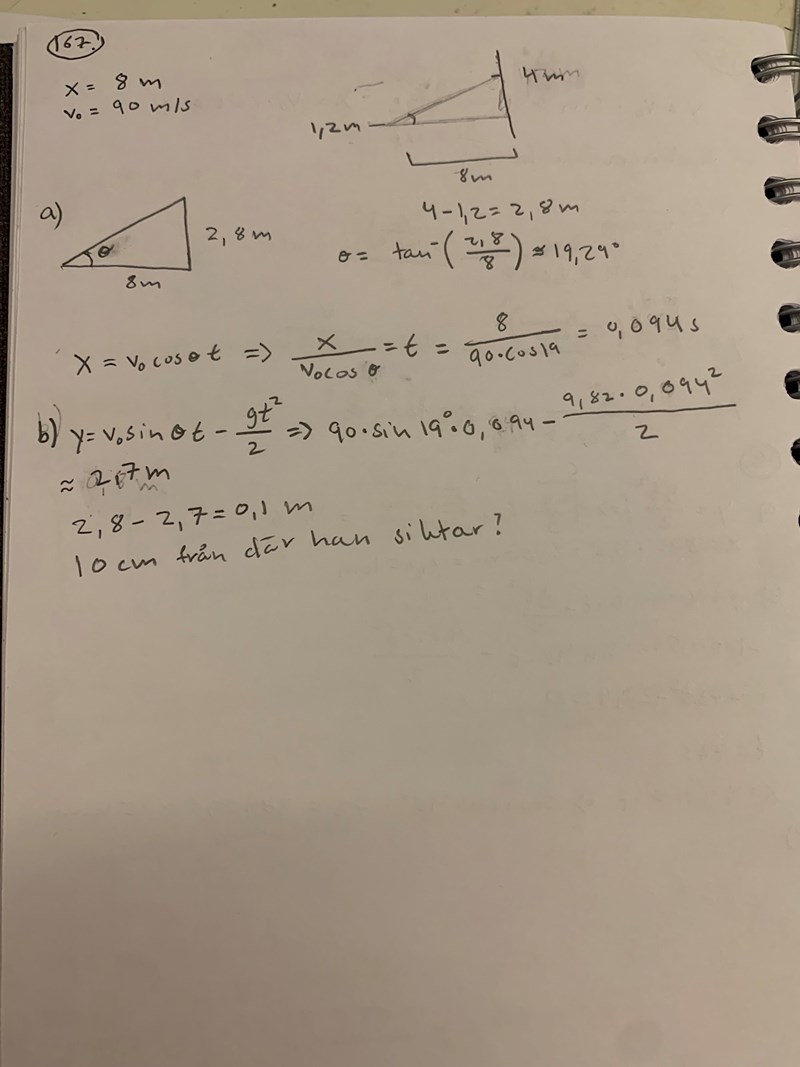 167.
x = 8 m
v₀ = 90 m/s
4 m
1,2m
8m
4-1,2 = 2,8 m
a)
2,8 m
θ
8m
θ = tan⁻(2,8/8) ≈ 19,29°
x = v₀ cos θ t => x/(v₀cos θ) = t = 8/(90·cos19) = 0,094 s
b) y = v₀ sin θ t - gt²/2 => 90·sin 19°·0,094 - 9,82·0,094²/2
≈ 2,7 m
2,8 - 2,7 = 0,1 m
10 cm från där han siktar?